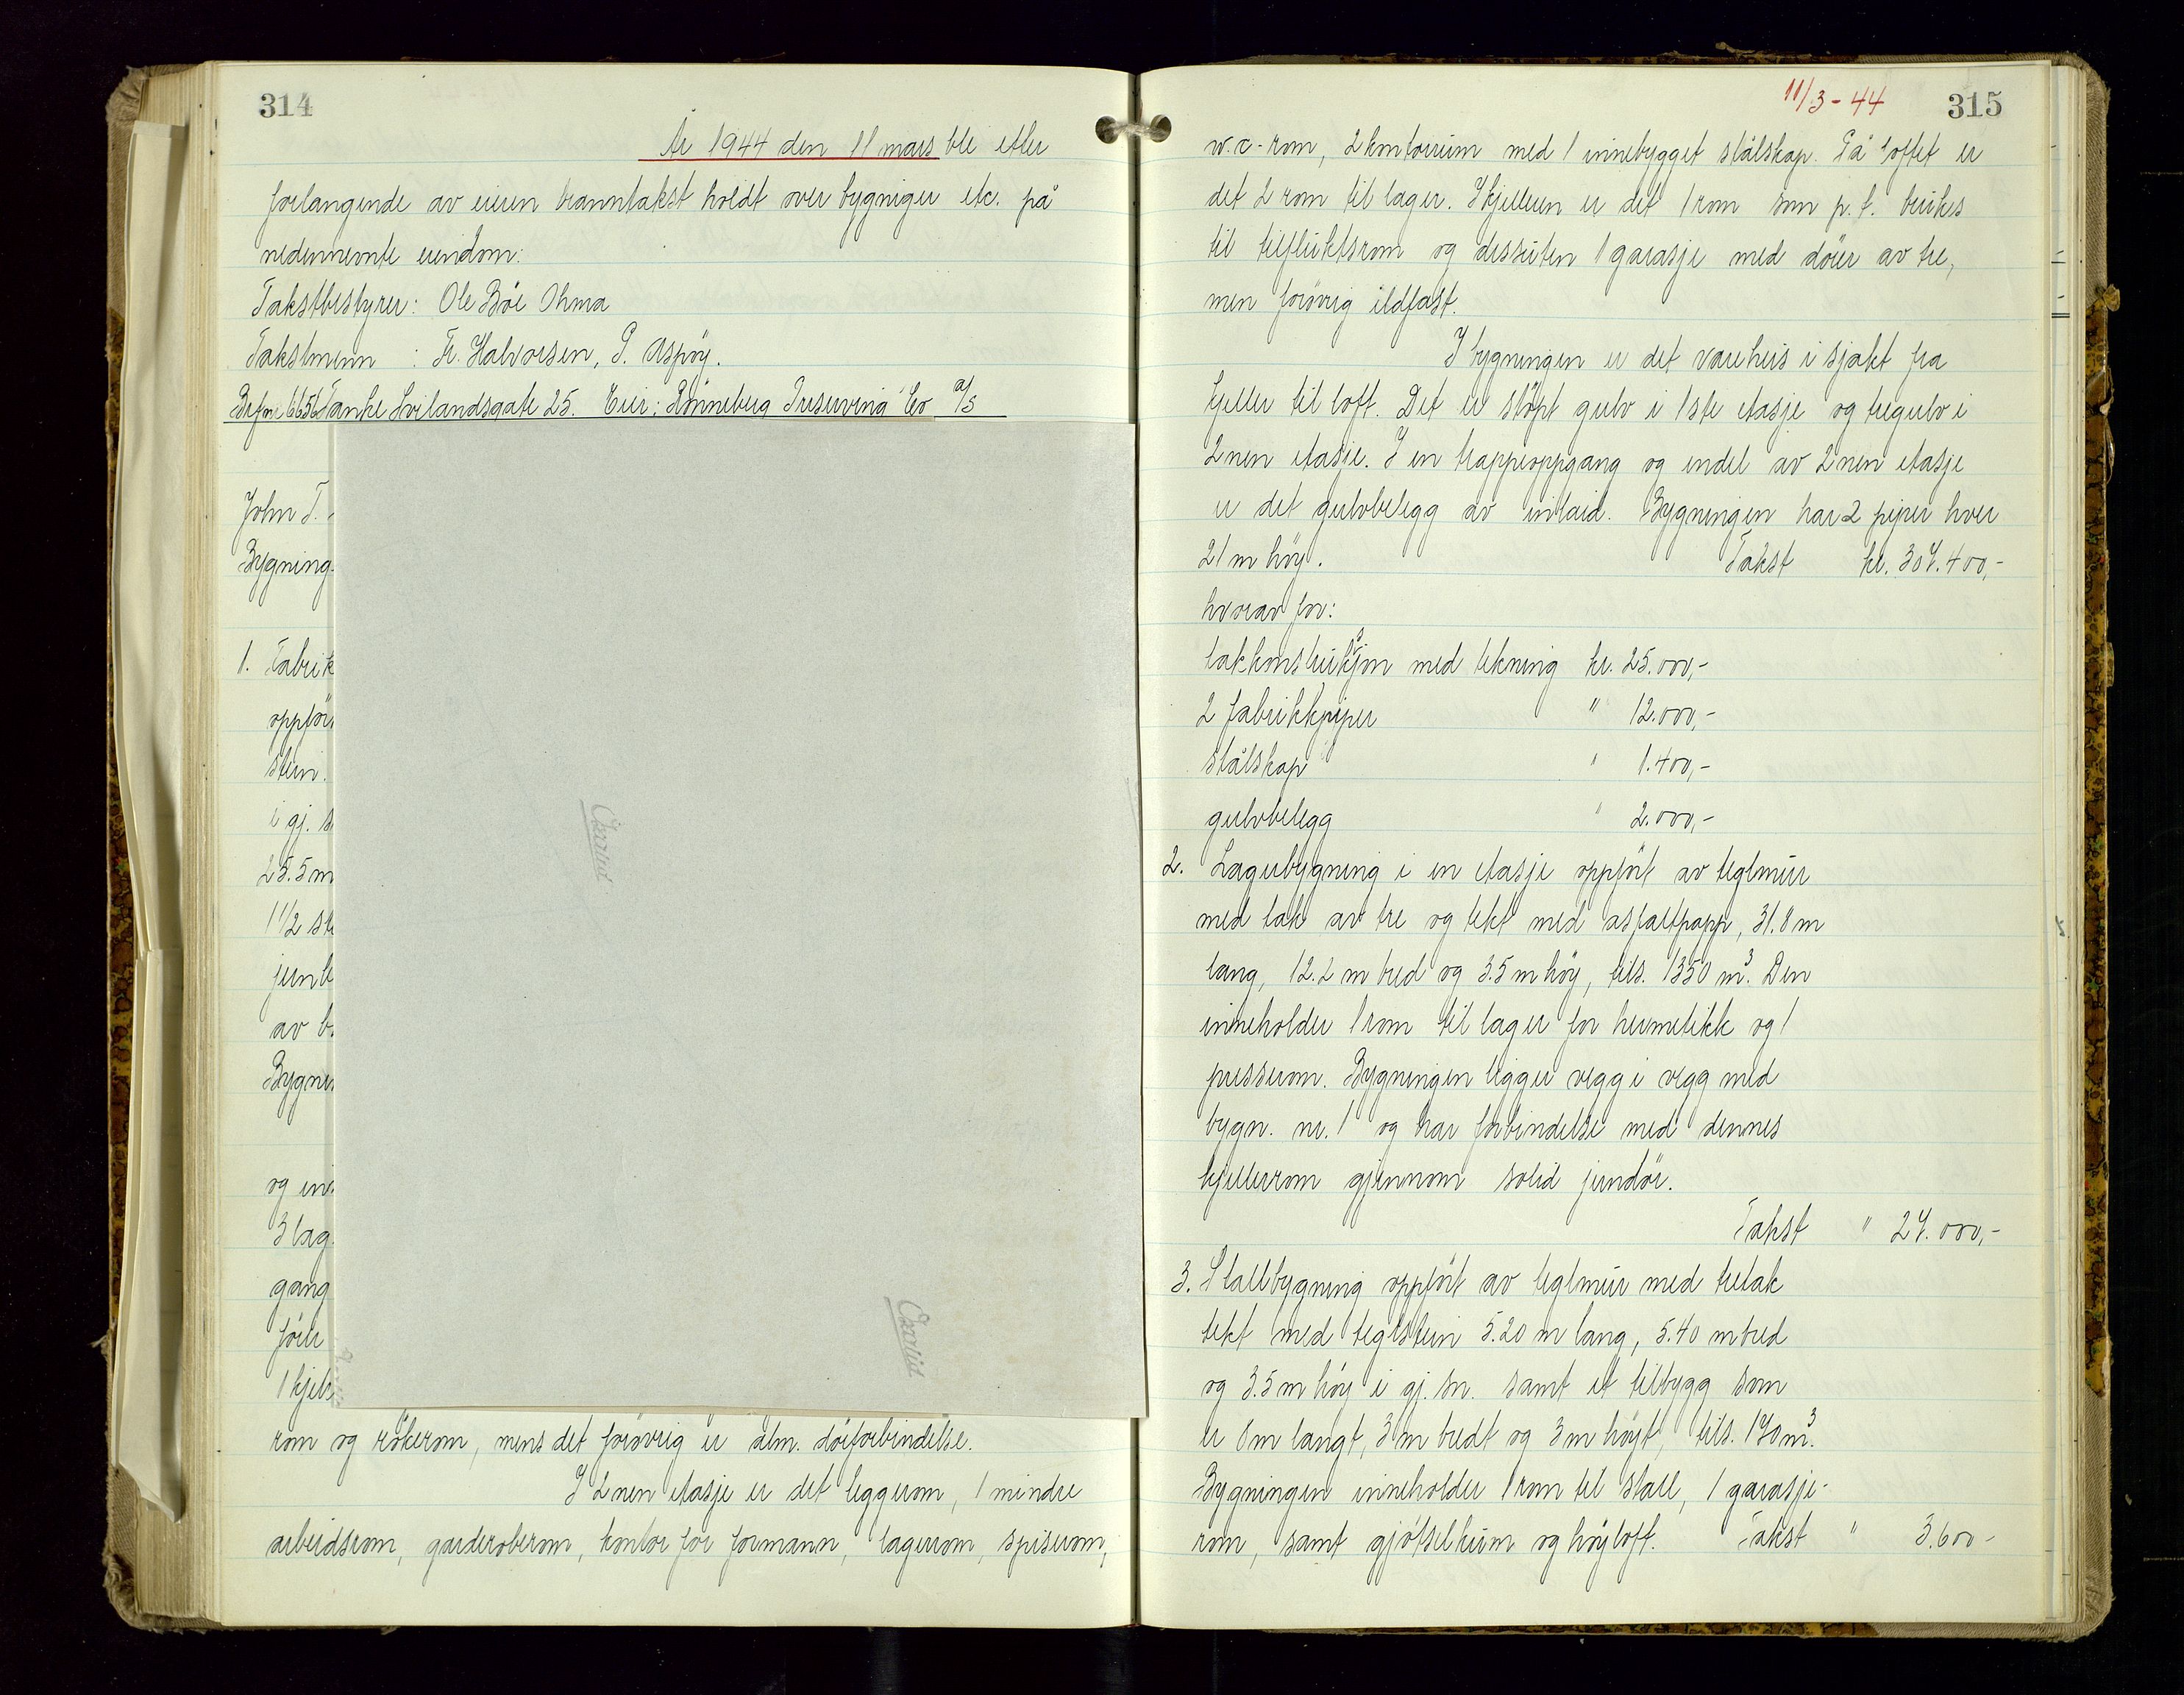 314
År 1944 den 11 mars ble etter
forlangende av eieren branntakst holdt over bygniger etc. på
nedennevnte eiendom:
Takstbestyrer: Ole Böe Ohma
Takstmenn : Fr. Halvorsen, P. Aspøy.
Brfnr 6656 Tanke Svilandsgate 25. Eier: Rönneberg Preserving Co a/s
John T.
Bygning
1. Fabrik
oppför
stein.
i gj. s
25.5 m
1 1/2 ste
jernbe
av b
Bygnin
og in
3 lag
gang
förer
1 kjele
rom og rökerom, mens det forövrig er alm. dörforbindelse.
I 2nen etasje er det leggerom, 1 mindre
arbeidsrom, garderoberom, kontor for formann, lagerrom, spiserom,
11/3-44
315
w.c.-rom, 2 kontorrum med 1 innebygget stålskap. På loftet er
det 2 rom til lager. I kjelleren er det 1 rom som p.t. brukes
til tilfluktsrom og dessuten 1 garasje med dörer av tre,
men forövrig ildfast.
I bygningen er det vareheis i sjakt fra
kjeller til loft. Det er stöpt gulv i 1ste etasje og tregulv i
2nen etasje. I en trappeoppgang og endel av 2nen etasje
er det gulvbelegg av inlaid. Bygningen har 2 piper hver
21 m höy. Takst kr. 307.400,-
hvorav for:
takkonstruksjon med tekning kr. 25.000,-
2 fabrikkpiper " 12.000,-
stålskap " 1.400,-
gulvbelegg " 2.000,-
2. Lagerbygning i en etasje oppfört av teglmur
med tak av tre og tekt med asfaltpapp, 31.8 m
lang, 12.2 m bred og 3.5 m höy, tils. 1350 m³. Den
inneholder 1 rom til lager for hermetikk og 1
presserom. Bygningen ligger vegg i vegg med
bygn. nr. 1 og har forbindelse med dennes
kjellerrom gjennom solid jerndör.
Takst " 27.000,-
3. Stallbygning oppfört av teglmur med tretak
tekt med teglstein 5.20 m lang, 5.40 m bred
og 3.5 m höy i gj. sn. samt et tilbygg som
er 8m langt, 3m bredt og 3m höyt, tils. 170 m³.
Bygningen inneholder 1 rom til stall, 1 garasje-
rom, samt gjötselkum og höyloft. Takst " 3.600-